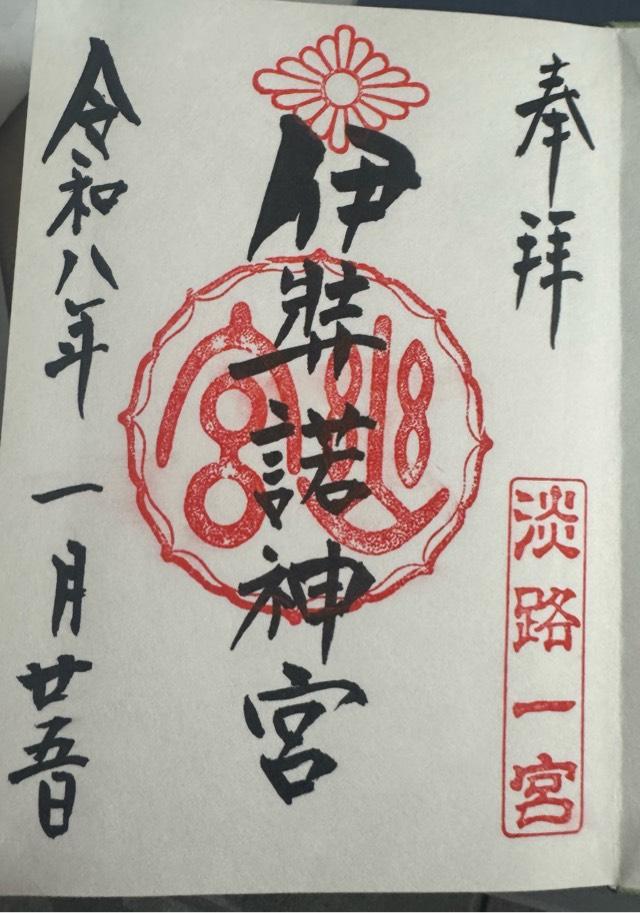 奉拝
淡路一宮
伊弉諾神宮
令和八年 一月廿五日